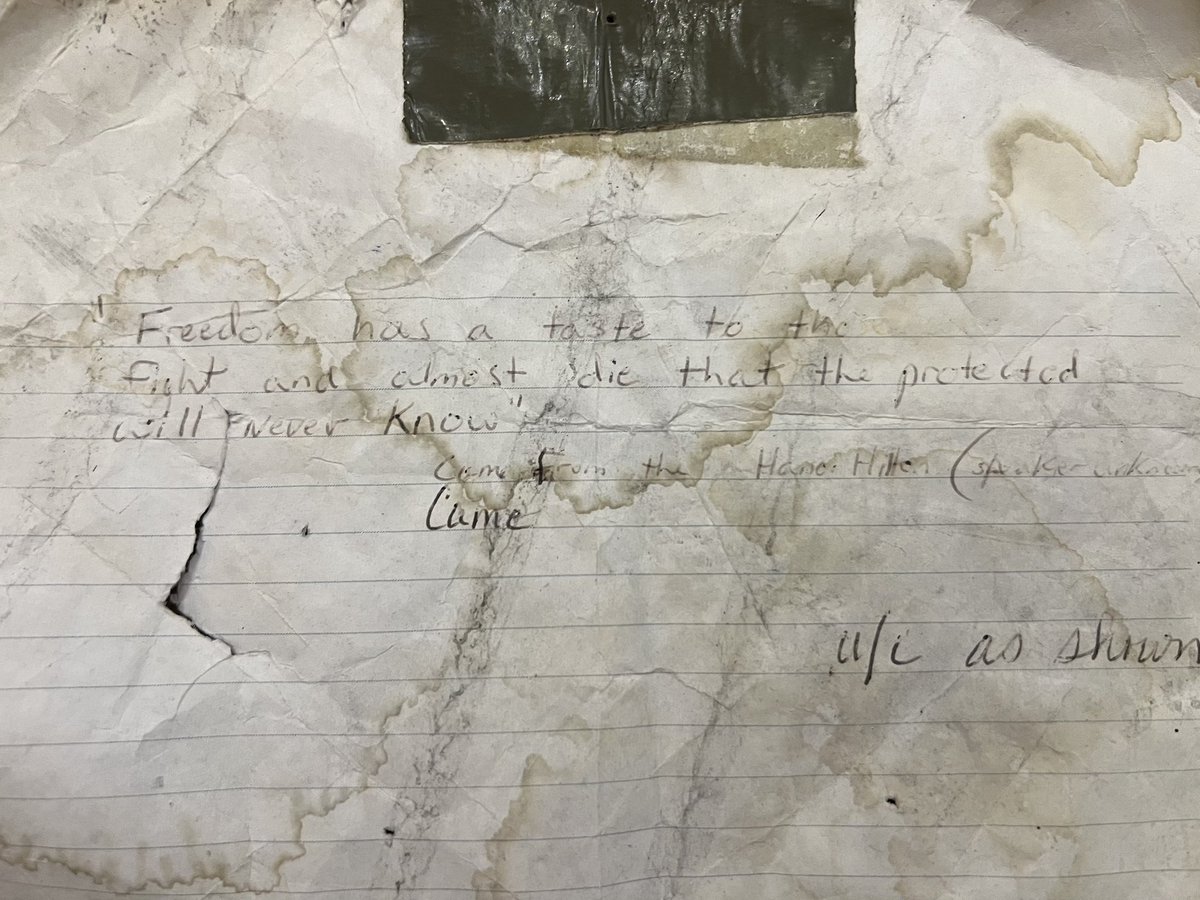 "Freedom has a taste to the
Fight and almost die that the protected
will never know"
Came from the Hanoi Hilton (speaker unknown
Came
u/c as shown